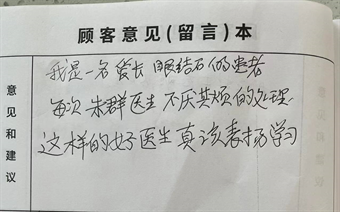 顾客意见(留言)本
意见和建议
我是一名爱长眼结石的患者
每次朱群医生不厌其烦的处理.
这样的好医生真该表扬学习